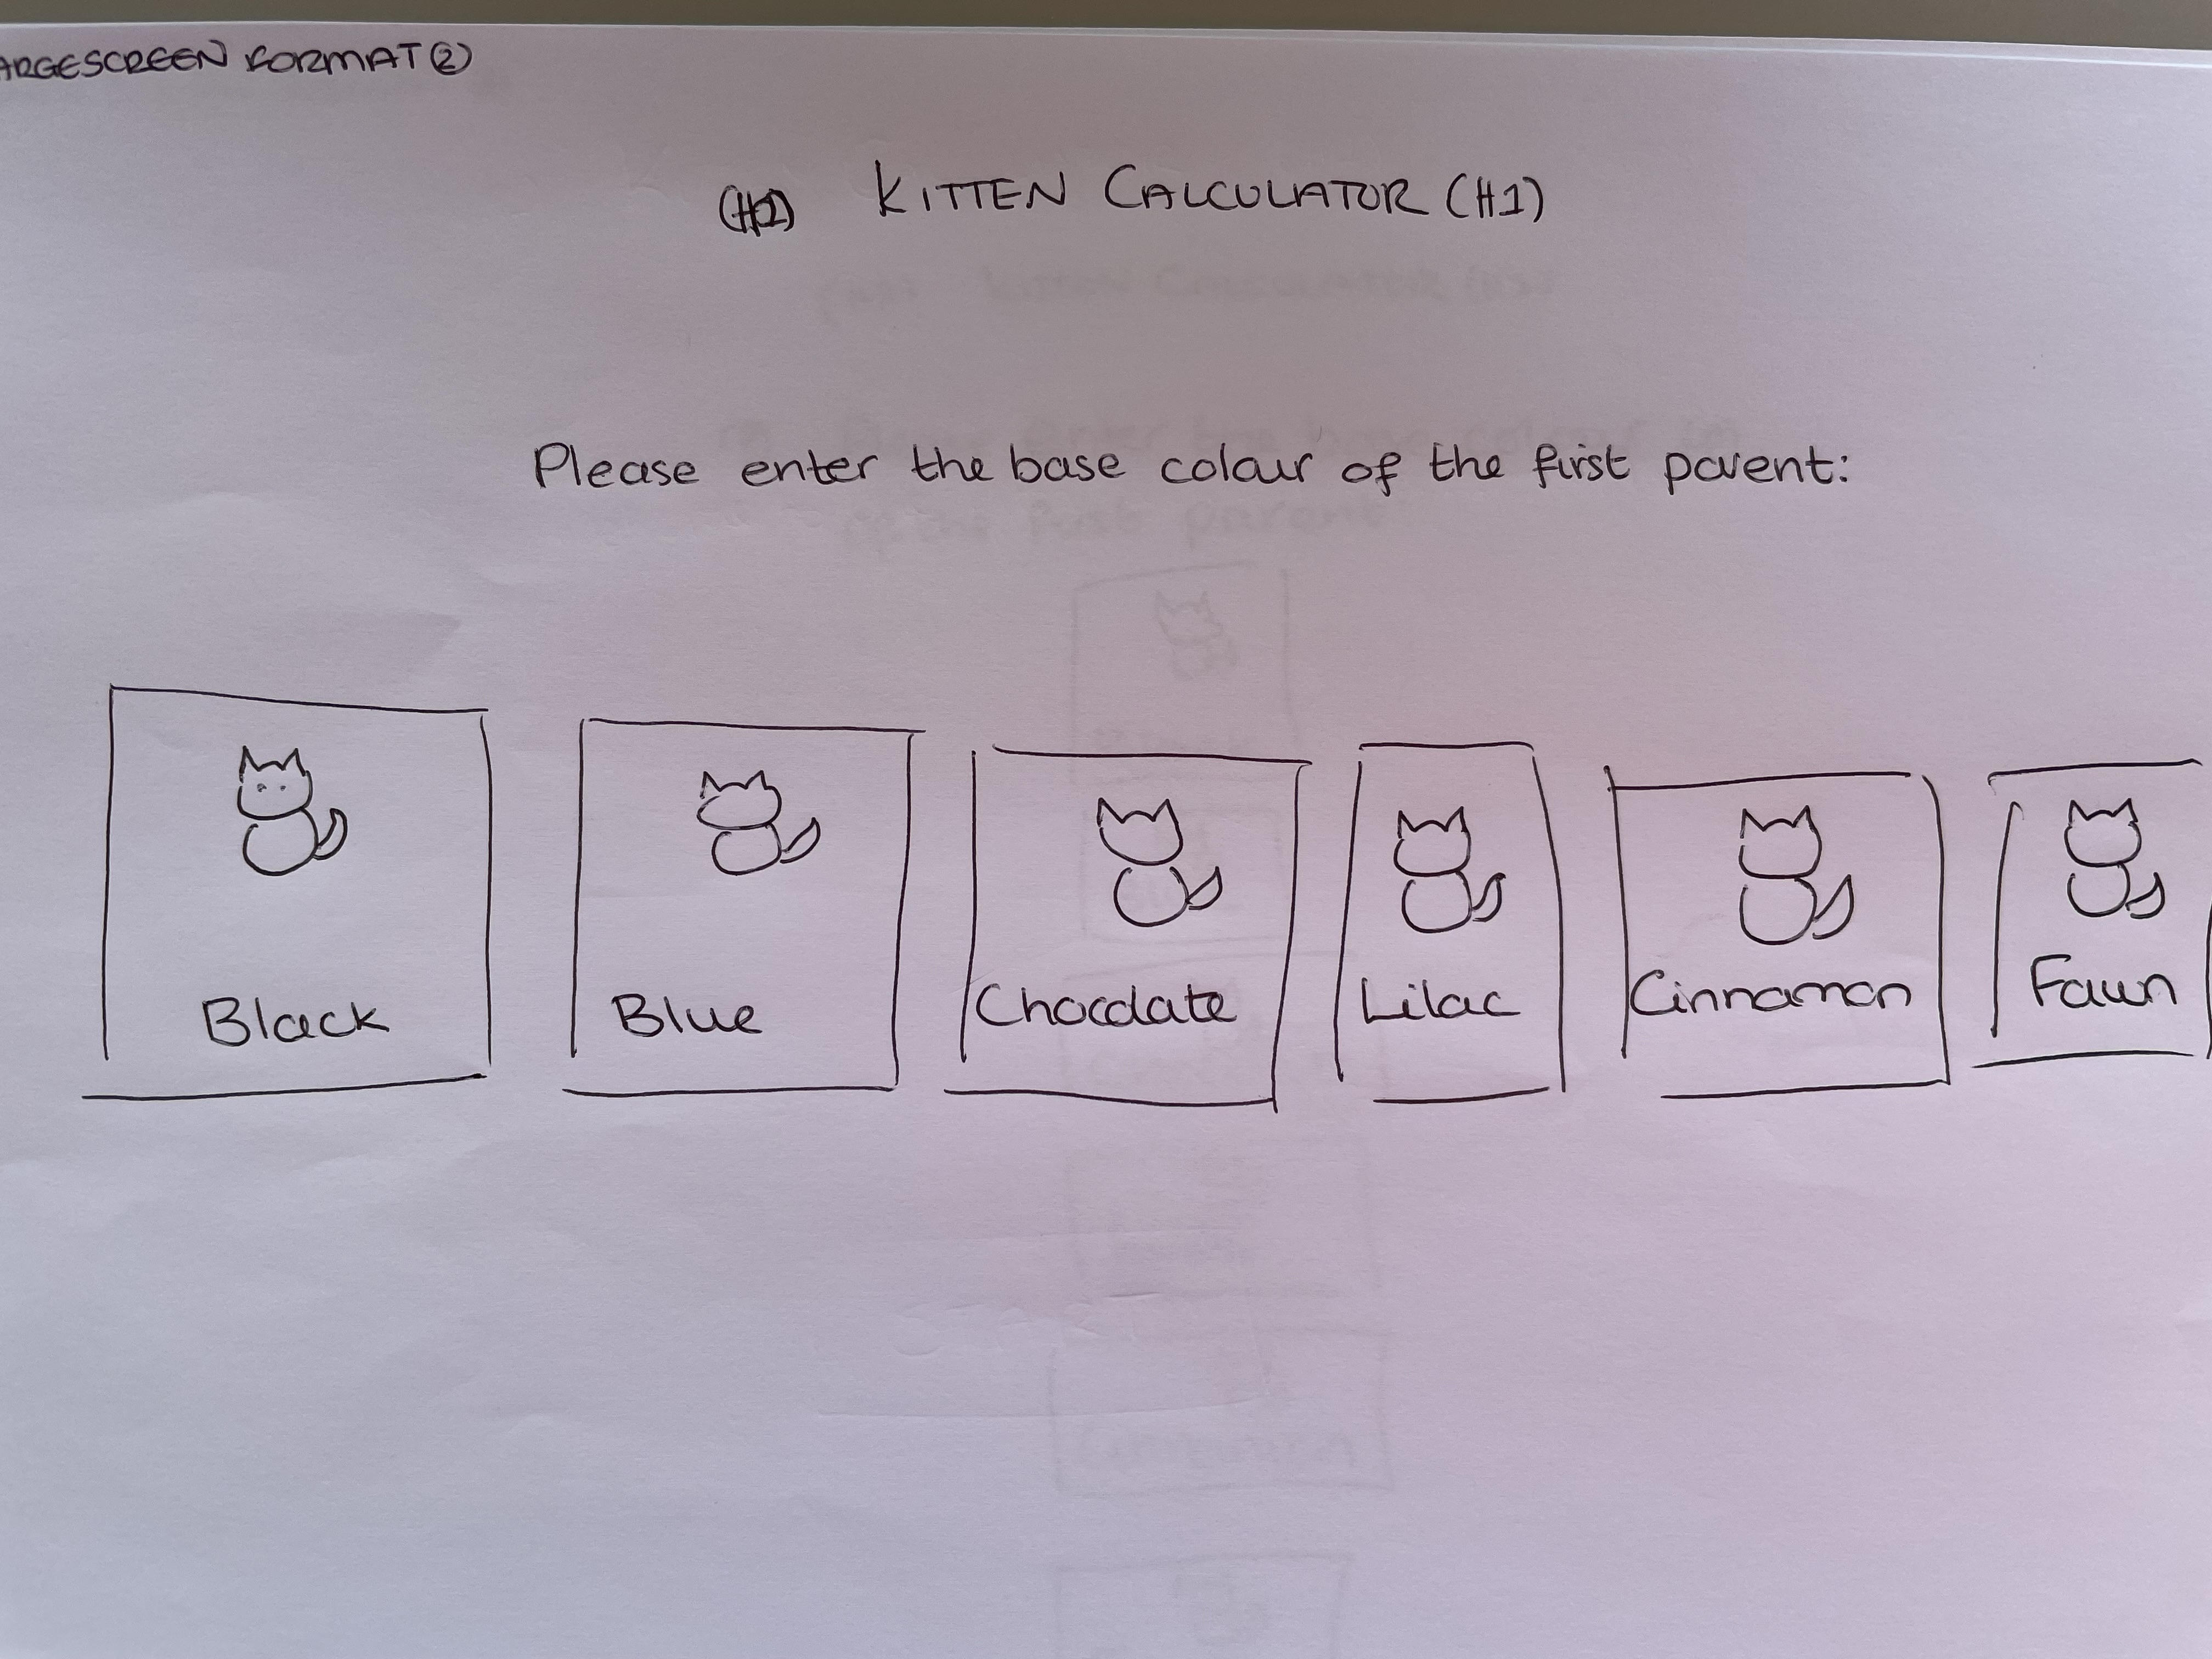 ARGESCREEN FORMAT ②
(H1) KITTEN CALCULATOR (H1)
Please enter the base colour of the first parent:
Black
Blue
Chocolate
Lilac
Cinnamon
Fawn